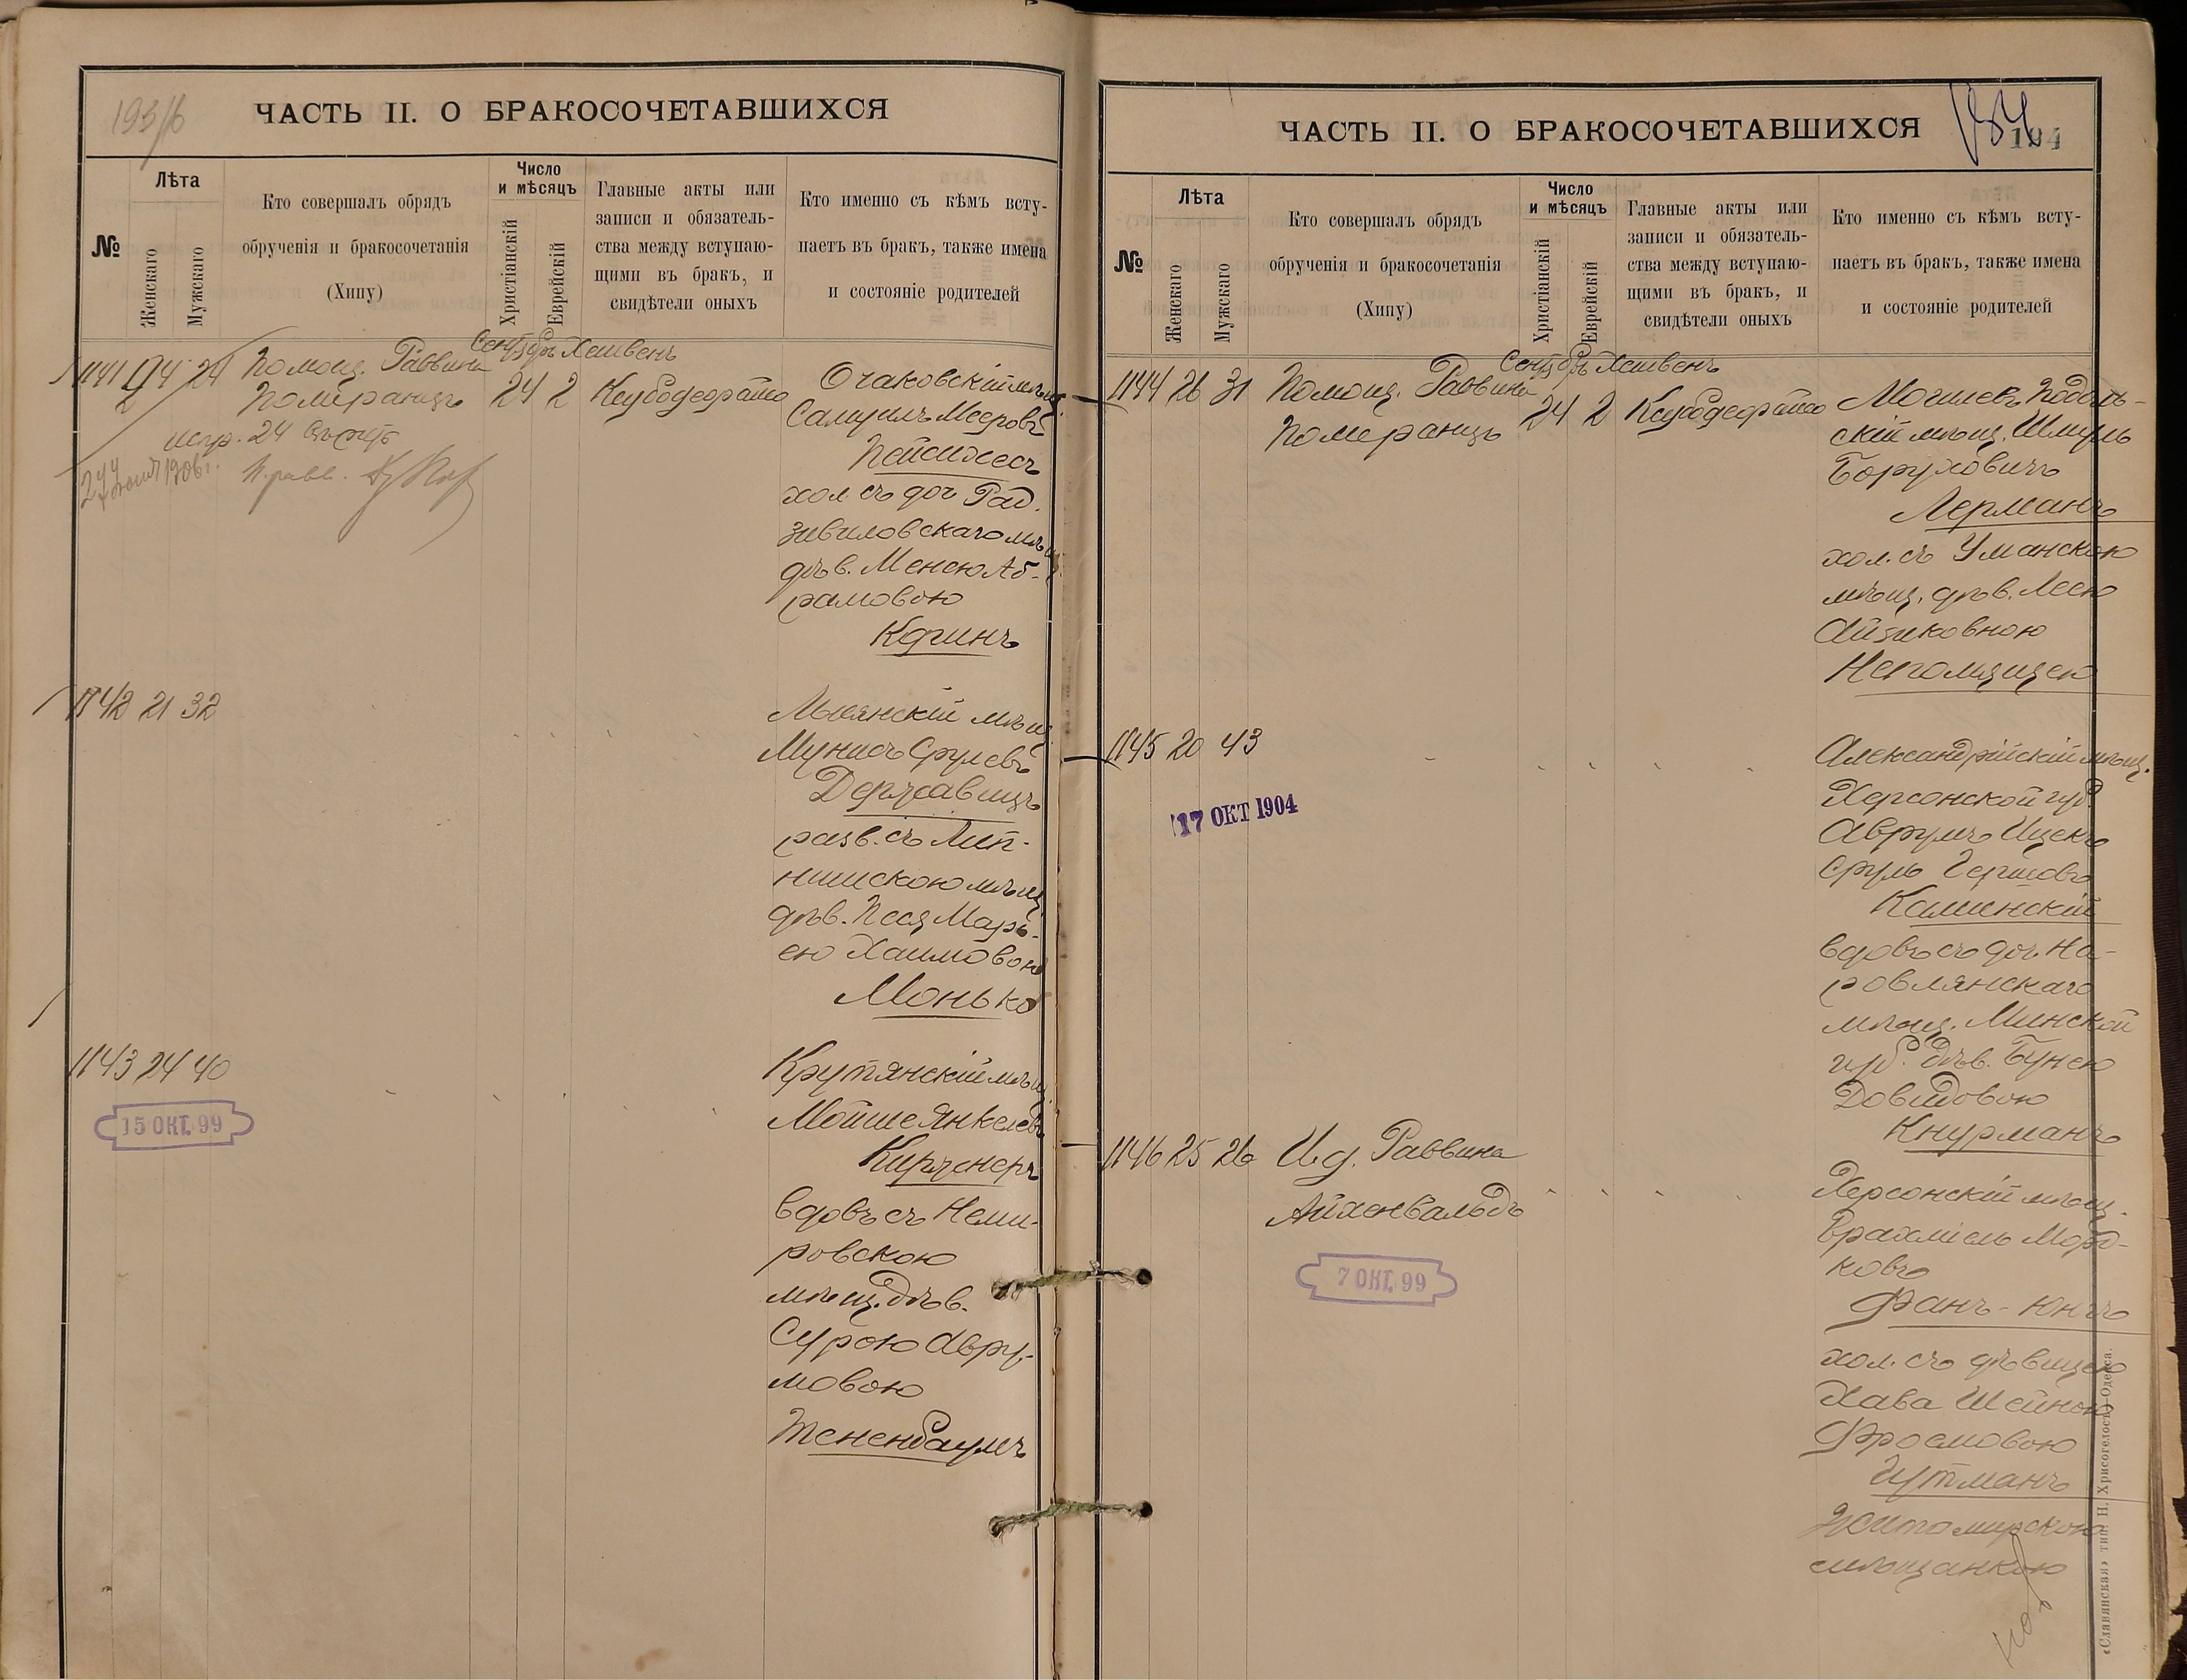 193/б
ЧАСТЬ II. О БРАКОСОЧЕТАВШИХСЯ
№
Лѣта
Женскаго
Мужскаго
Кто совершалъ обрядъ
обрученія и бракосочетанія
(Хипу)
Число
и мѣсяцъ
Христіанскій
Еврейскій
Главные акты или
записи и обязатель-
ства между вступаю-
щими въ бракъ, и
свидѣтели оныхъ
Кто именно съ кѣмъ всту-
паетъ въ бракъ, также имена
и состояніе родителей
1141 24 24 Помощ. Раввина
Померанцъ
Сентябрь Хешвенъ
24 2
испр. 24
1906 г.
Очаковскій мѣщ.
Самуилъ Мееровъ
Пейсихесъ
хол. съ доч. Рад-
зивиловскаго мѣщ.
дѣв. Менею Аб-
рамовою
Коринъ
1142 21 32
мѣщ.
Мунисъ Срулевъ
Державецъ
разв. съ Лип-
нишскою мѣщ.
дѣв. Песя Марь-
ею Хаимовою
Монько
1143 24 40
15 ОКТ. 99
Крутянскій мѣщ.
Мойше Янкелевъ
Киржнеръ
вдовъ съ Неми-
ровскою
мѣщ. дѣв.
Сурою Авру-
мовою
Тененбаумъ
ЧАСТЬ II. О БРАКОСОЧЕТАВШИХСЯ
184
194
№
Лѣта
Женскаго
Мужскаго
Кто совершалъ обрядъ
обрученія и бракосочетанія
(Хипу)
Число
и мѣсяцъ
Христіанскій
Еврейскій
Главные акты или
записи и обязатель-
ства между вступаю-
щими въ бракъ, и
свидѣтели оныхъ
Кто именно съ кѣмъ всту-
паетъ въ бракъ, также имена
и состояніе родителей
1144 26 31 Помощ. Раввина
Померанцъ
Сентябрь Хешвенъ
24 2
Могилевъ Подоль-
скій мѣщ. Шмуль
Боруховичъ
Лерманъ
хол. съ Уманскою
мѣщ. дѣв. Леею
Айзиковною
Непомящею
1145 20 43
17 ОКТ 1904
Александрійскій мѣщ.
Херсонской губ.
Аврумъ Ицекъ
Сруль Гершовъ
Каменскій
вдовъ съ доч. На-
ровлянскаго
мѣщ. Минской
губ. дѣв. Бунею
Довидовою
Кнурманъ
1146 25 26 И.д. Раввина
Айхенвальдъ
7 ОКТ. 99
Херсонскій мѣщ.
Ерахміель Морд-
ковъ
Фанъ-Юнгъ
хол. съ дѣвицею
Хава Шейною
Фроемовою
Гутманъ
Житомирскою
мѣщанкою
«Славянская» тип. Н. Хрисогелосъ, Одесса.